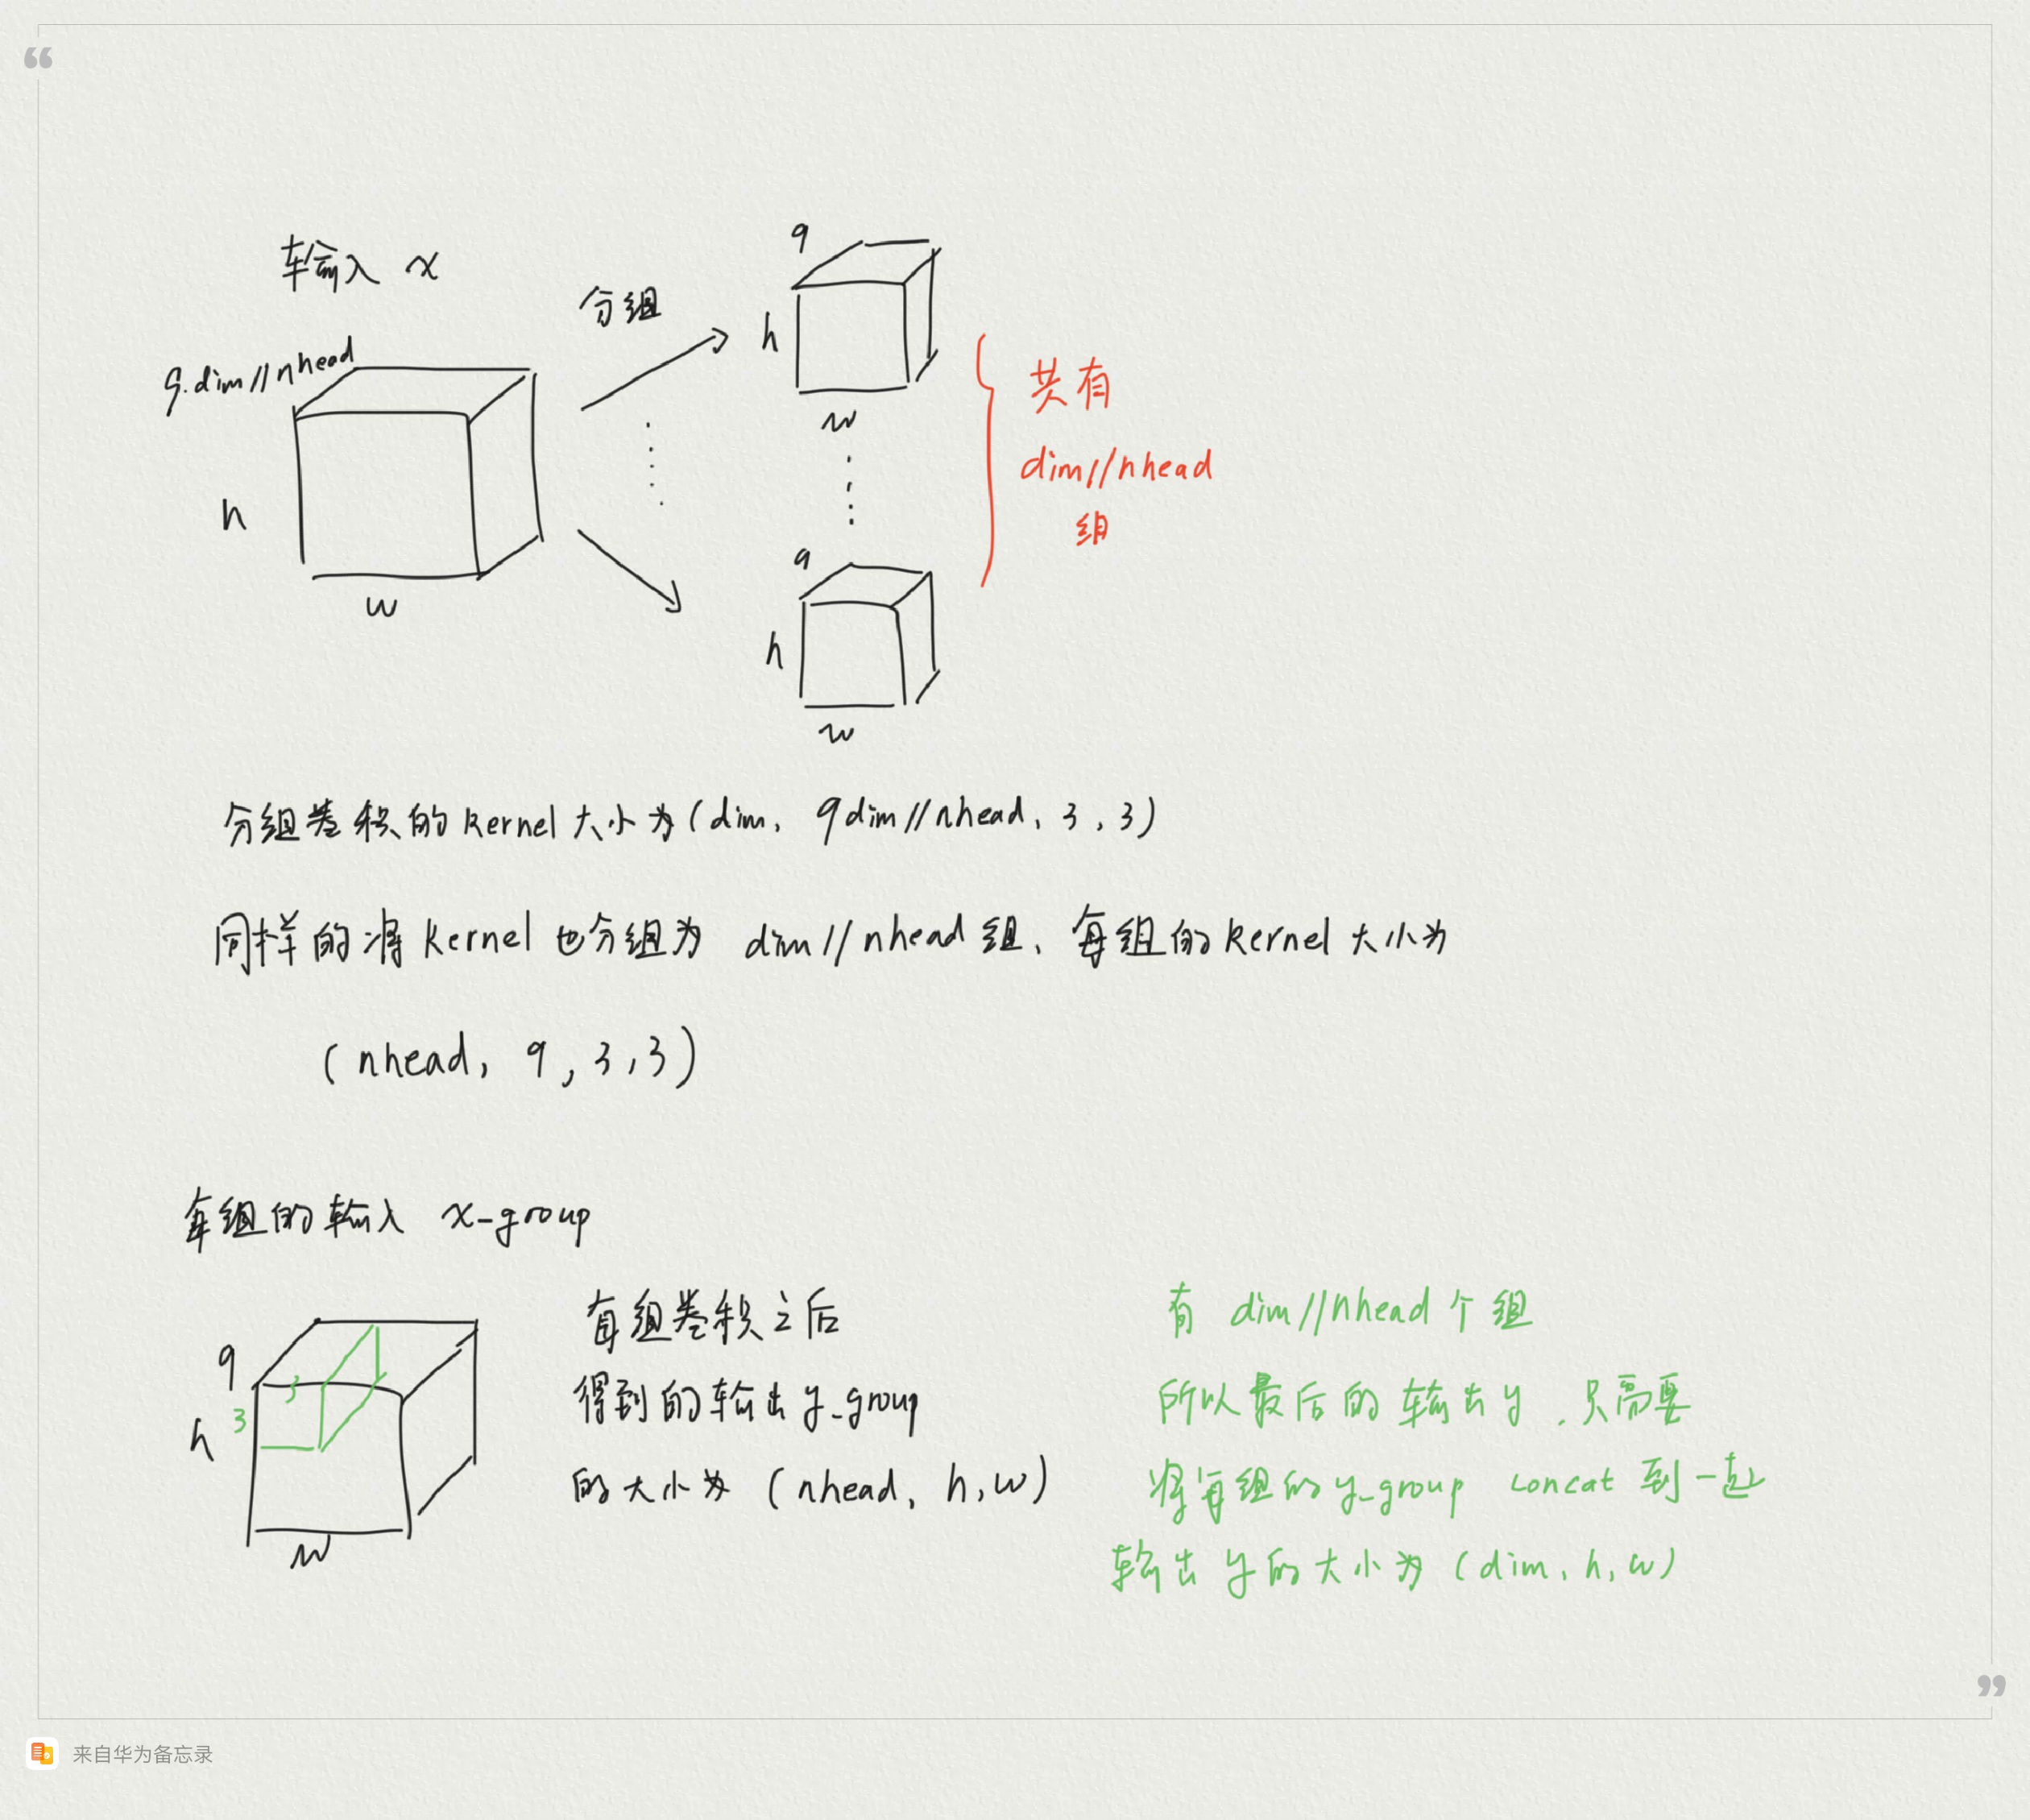 “
输入 x
9·dim//nhead
h
w
分组
9
h
w
9
h
w
共有
dim//nhead
组
分组卷积的kernel大小为(dim, 9dim//nhead, 3, 3)
同样的将kernel也分组为 dim//nhead组、每组的kernel大小为
(nhead, 9, 3, 3)
每组的输入 x_group
9
3
3
h
w
每组卷积之后
得到的输出y_group
的大小为 (nhead, h, w)
有 dim//nhead个组
所以最后的输出y,只需要
将每组的y_group concat到一起
输出y的大小为(dim, h, w)
”
来自华为备忘录